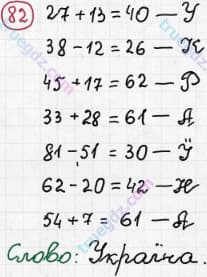 82 27 + 13 = 40 — У
38 - 12 = 26 — К
45 + 17 = 62 — Р
33 + 28 = 61 — А
81 - 51 = 30 — Ї
62 - 20 = 42 — Н
54 + 7 = 61 — А
Слово: Україна.